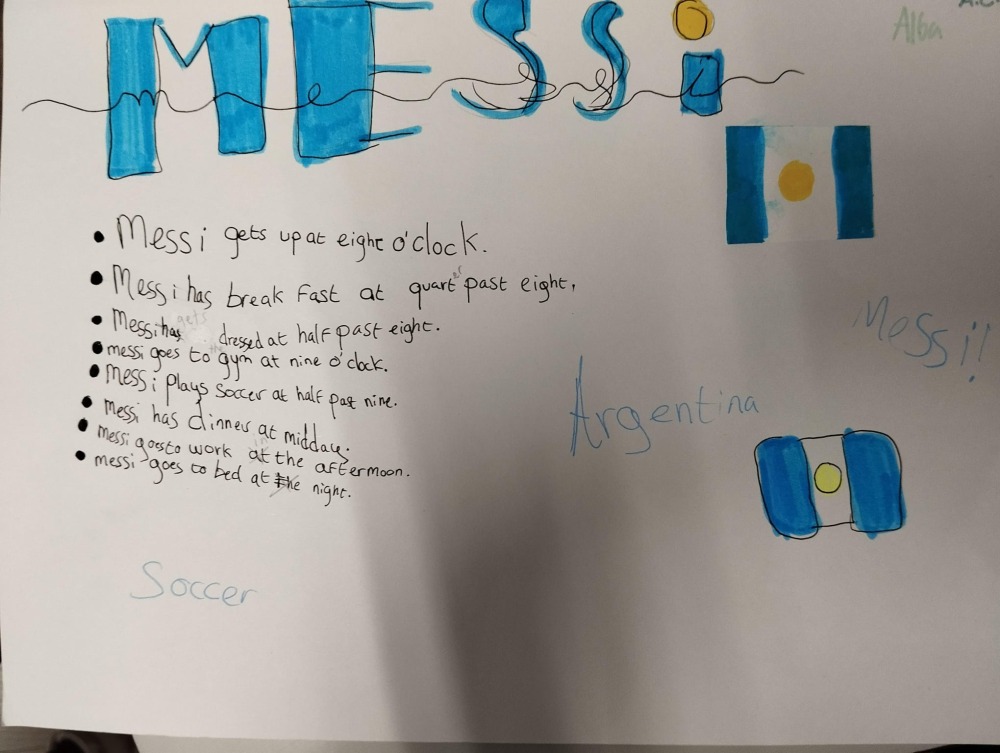 MESSi
Alba
• Messi gets up at eight o'clock.
• Messi has break Fast at quarter past eight,
• Messi has gets dressed at half past eight.
• messi goes to the gym at nine o'clock.
• Messi plays soccer at half past nine.
• Messi has dinner at midday.
• Messi goes to work at in the afternoon.
• messi goes to bed at the night.
Messi!
Argentina
Soccer